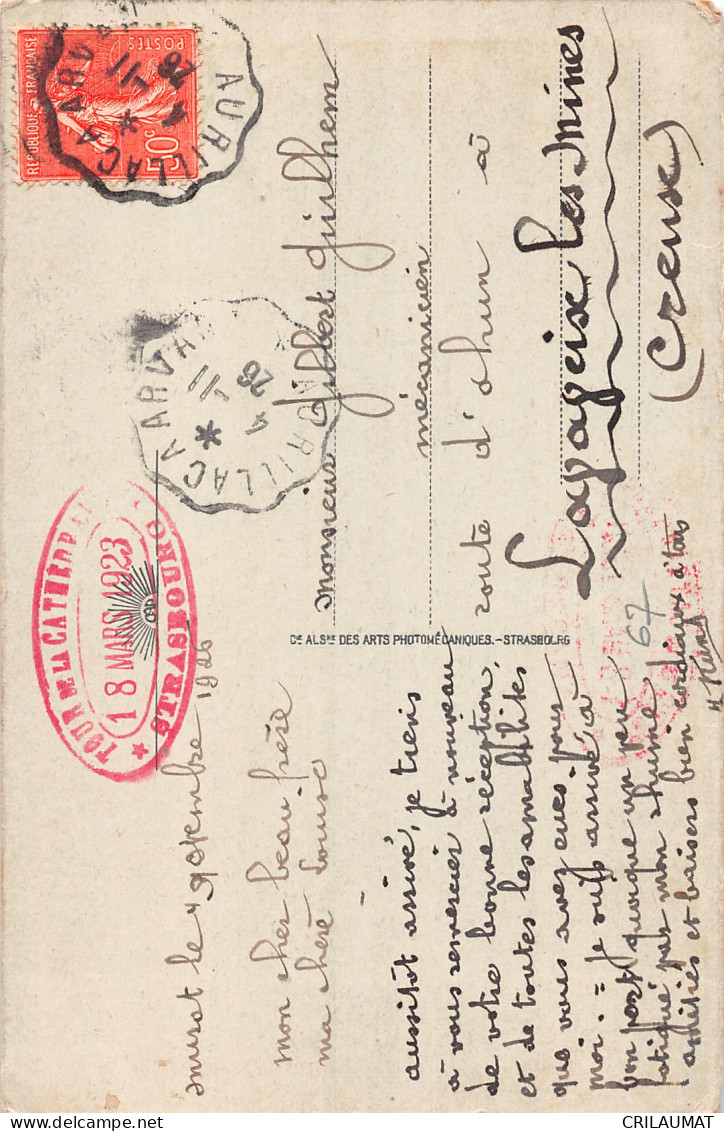 murat le 4 novembre 1926
mon cher beau-frère
ma chère Louise
aussitôt arrivé, je tiens
à vous remercier à nouveau
de votre bonne réception,
et de toutes les amabilités
que vous avez eues pour
moi. = je suis arrivé à
bon port quoique un peu
fatigué par mon rhume
amitiés et baisers bien cordiaux à tous
Monsieur Gilbert Guilhem
mécanicien
route d'ahun à
Lavaveix les Mines
(Creuse)
67
Cie ALSne DES ARTS PHOTOMÉCANIQUES.-STRASBOURG
TOUR DE LA CATHEDRALE
18 MARS 1923
★ STRASBOURG
RÉPUBLIQUE FRANÇAISE
POSTES
50c
AURILLAC A ARVANT
4 -11
26
*
AURILLAC A ARVANT
4 -11
26
*
CRILAUMAT